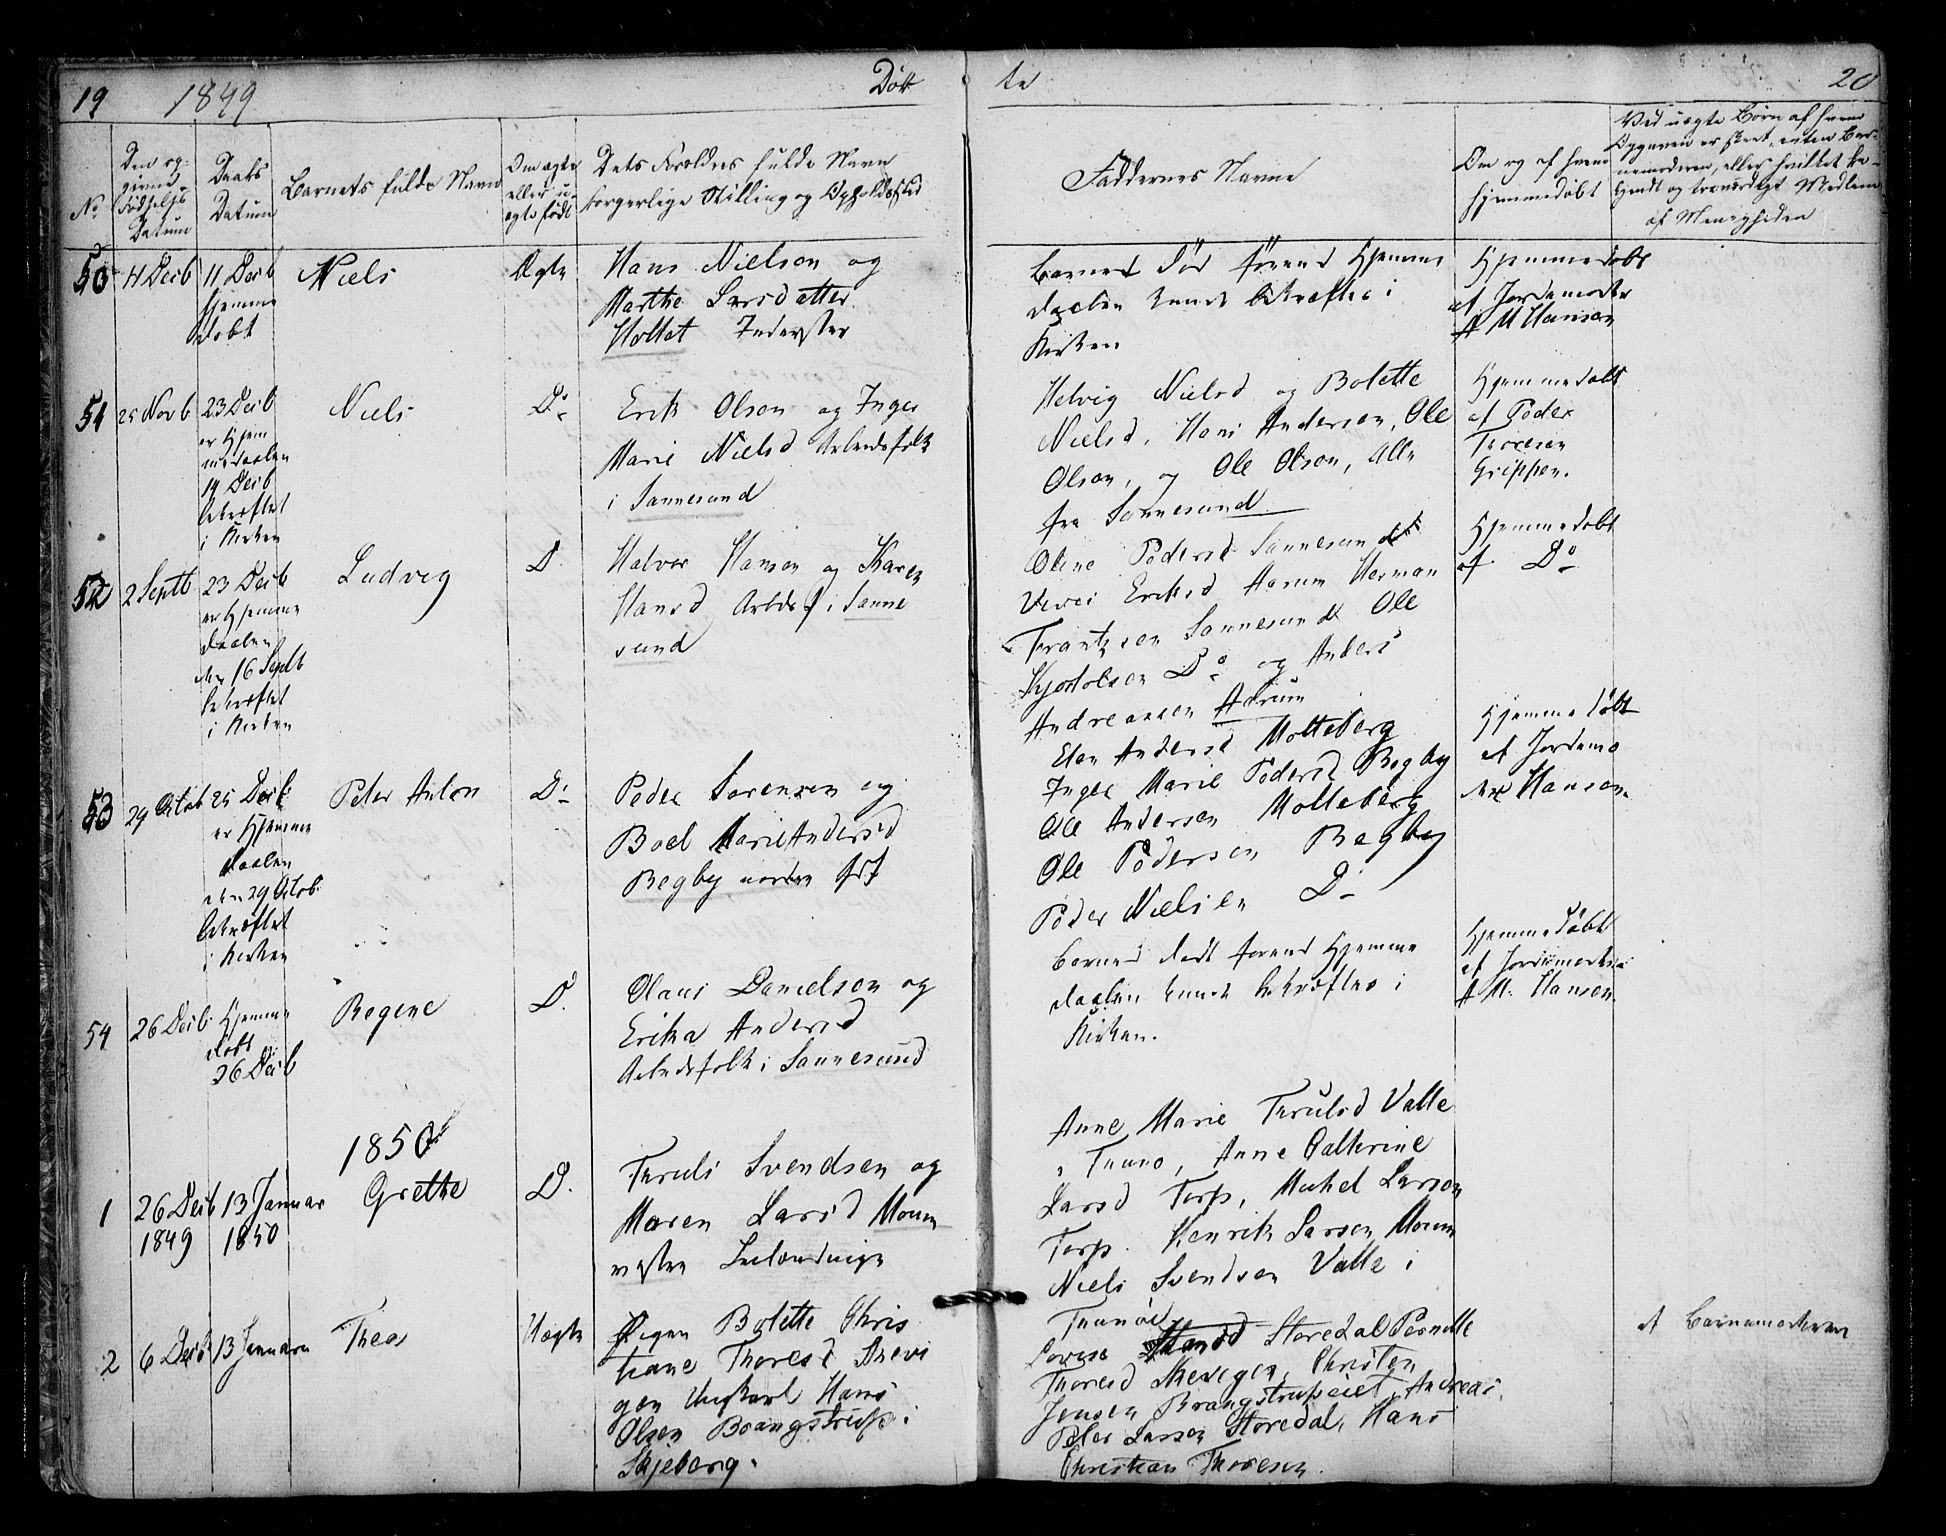 19 1849 Døb te 20
No
Den op-
givne
Fødsels
Datum
Daabs
Datum
Barnets fulde Navn
Om ægte
eller u-
ægte født
Dets Forældres fulde Navn
borgerlige Stilling og Opholdssted
Faddernes Navne
Om og af hvem
hjemmedøbt
Ved uægte Børn af hvem
Opgaven er skeet, enten Bar-
nemoderen, eller hvilket be-
kjendt og troværdigt Medlem
af Menigheden
50 11 Decb 11 Decb
hjemme
døbt
Niels
Ægte
Hans Nielsen og
Marthe Larsdatter
Holtet Inderster
Barnet død førend Hjemme
daaben kunde bekræftes i
Kirken
Hjemmedøbt
af Jordemoder
A M Hansen
51 25 Novb 23 Decb
er Hjem
medaaben
19 Decb
bekræftet
i Kirken
Niels
Do
Erik Olsen og Inger
Marie Nielsd Arbeidsfolk
i Sannesund
Helvig Nielsd og Bolette
Nielsd, Hans Andersen, Ole
Olsen, og Ole Olsen, Alle
fra Sannesund
Hjemmedøbt
af Peder
Thoresen
Grippen.
52 2 Septb 23 Decb
er Hjemme
daaben
den 16 Septb
bekræftet
i Kirken
Ludvig
D.
Halvor Hansen og Karen
Hansd Arbdsf i Sanne
sund
Oline Pedersd Sannesund
Erichsd Harum Herman
Frantzen Sannesund Ole
Kjostolsen Do og Anders
Andreassen Aarum
Hjemmedøbt
af Do
53 29 Octob 25 Decb
er Hjemme
daaben
den 29 Octob
bekræftet
i Kirken
Peter Anton
Do
Peder Sørensen og
Boel Marie Andersd
Begby nordre
Elen Andersd Molteberg
Inger Marie Pedersd Begby
Ole Andersen Molteberg
Ole Pedersen Begby
Peder Nielsen D
Hjemmedøbt
af Jordemo
der Hansen
54 26 Decb Hjemme
døbt
26 Decb
Regine
D.
Olaus Danielsen og
Erika Andersd
Arbeidsfolk i Sannesund
Barnet dødt førend Hjemme
daaben kunde bekræftes i
Kirken.
Hjemmedøbt
af Jordemoder
A M. Hansen
1850
1 26 Decb 13 Januar
1849 1850
Grethe
D.
Truls Svendsen og
Maren Larsd Moum
vestre Selveiende
Anne Marie Trulsd Valle
i Tunø, Anne Cathrine
Larsd Torp, Mickel Larsen
Torp. Henrik Larsen Moum
Niels Svendsen Valle i
Tunø
2 6 Decb 13 Januar
Thea
Uægte
Pigen Bolette Chris
tiane Thoresd Skevi
gen Ungkarl Hans
Olsen Brangstrup i
Skjeberg.
Lovise Hansd Storedal Pernille
Thoresd Skevigen, Christen
Jensen Brangstrupeiet, Andreas
Peter Larsen Storedal, Hans
Christian Thoresen.
af Barnemoderen